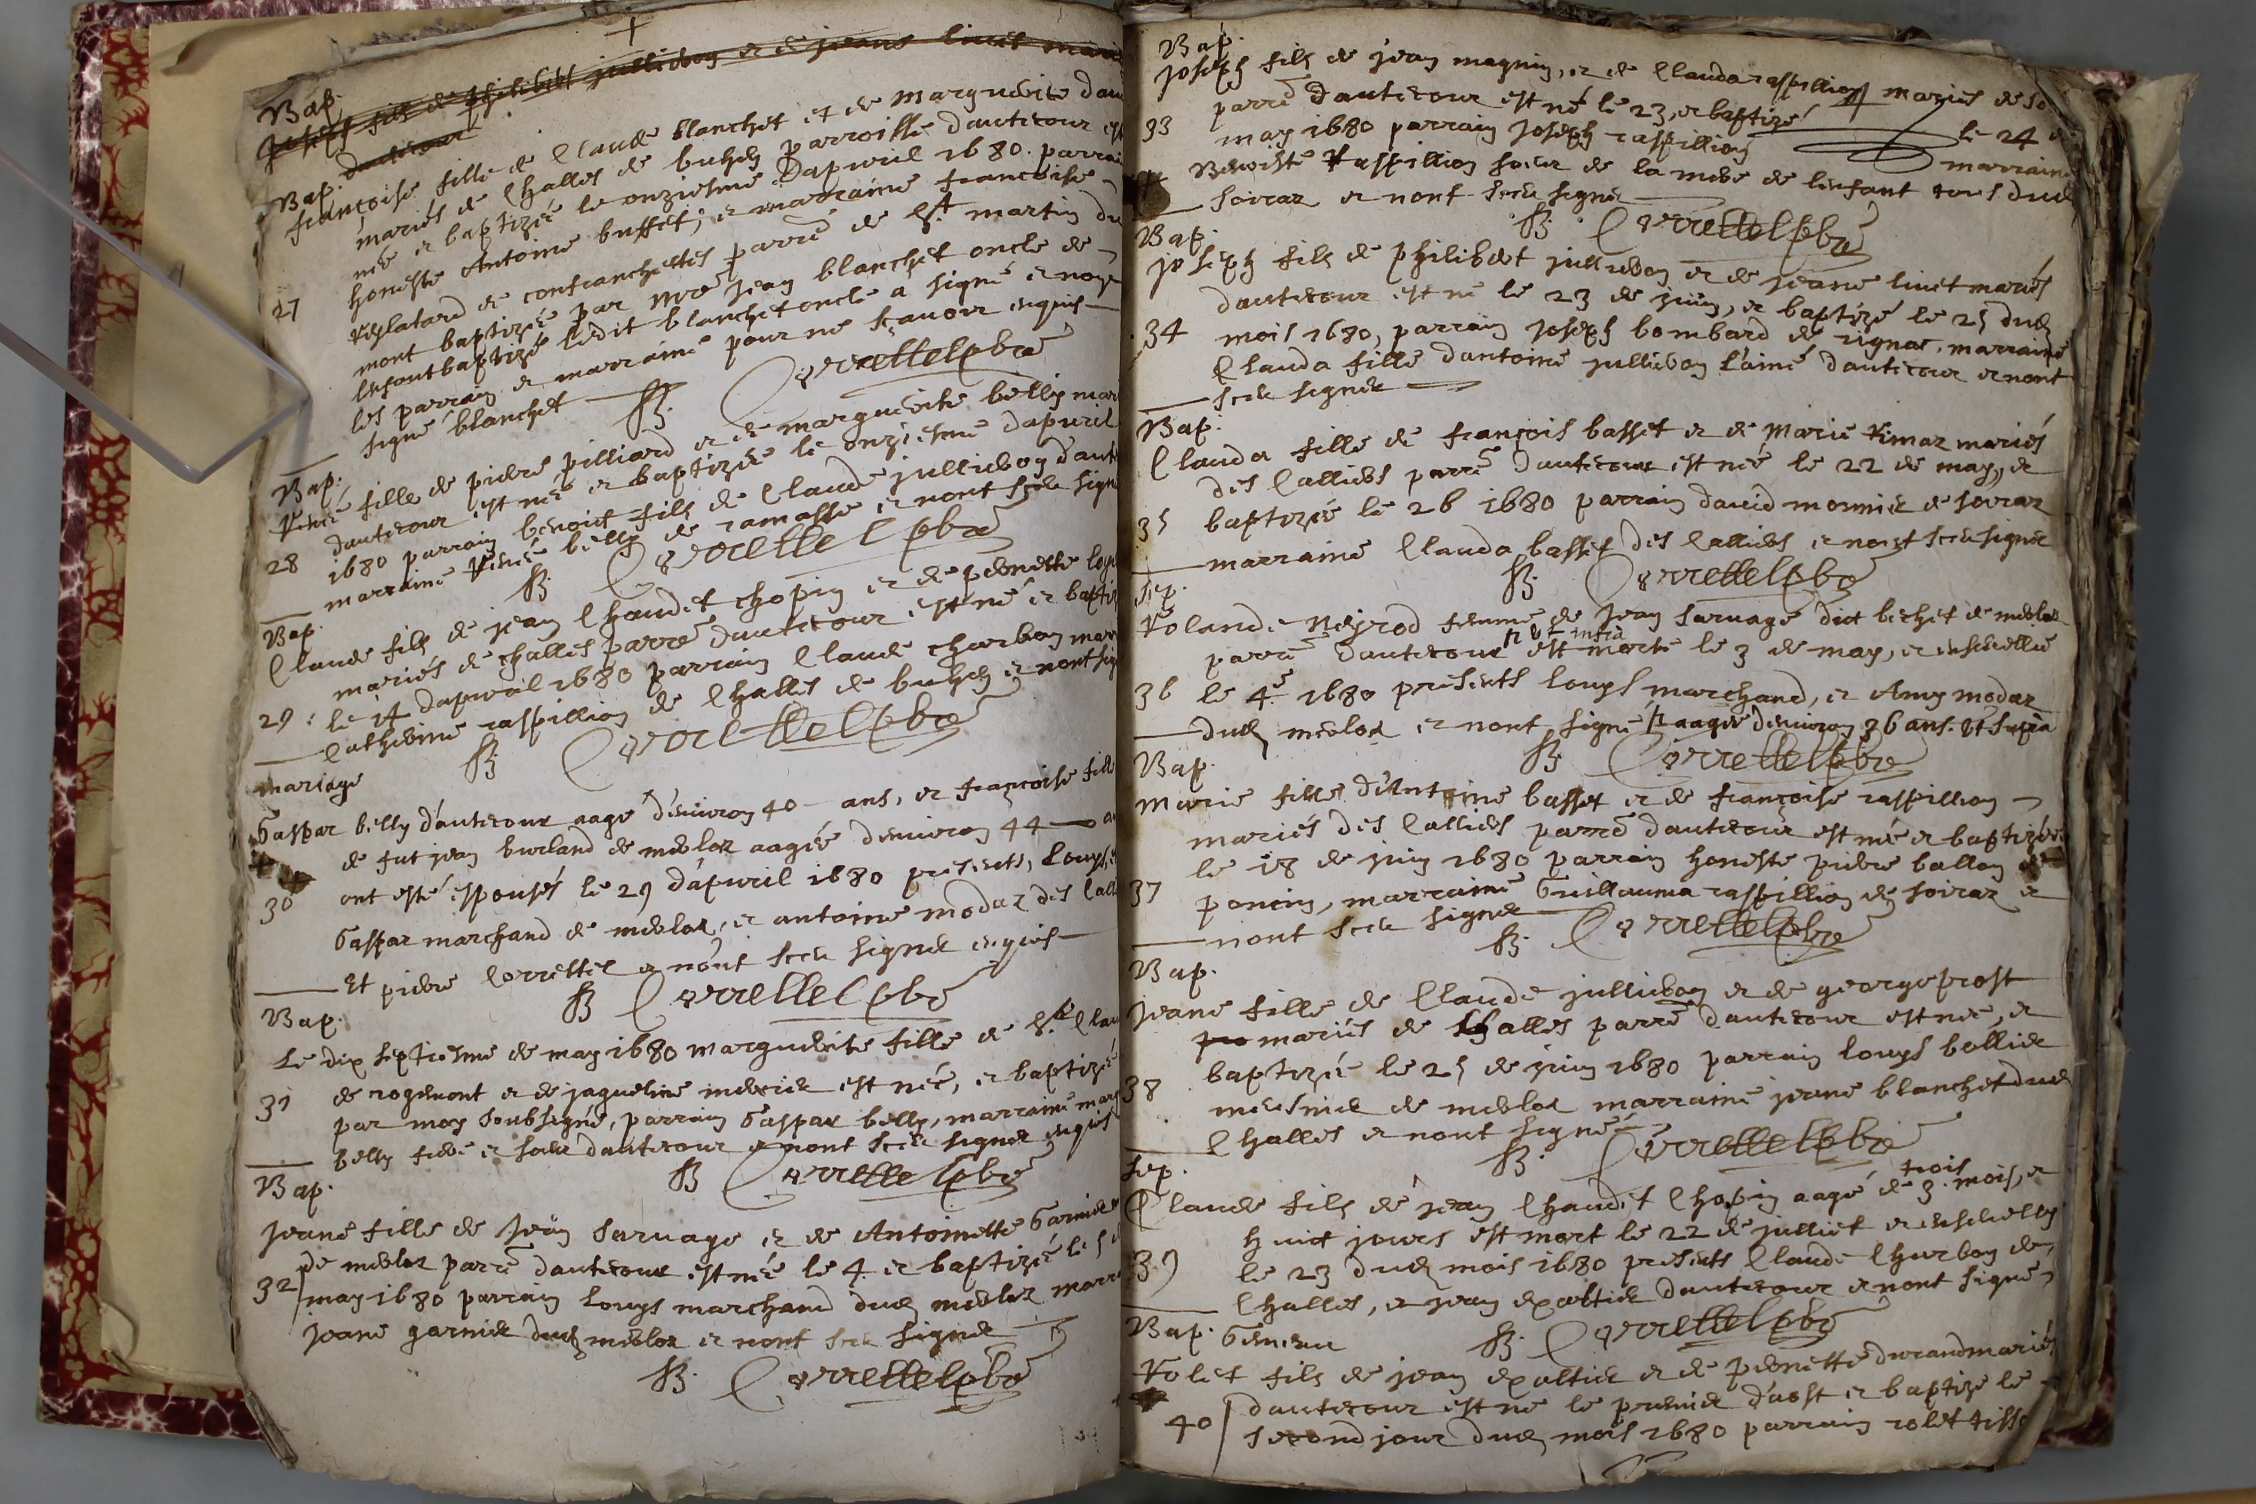 Bap.
joseph fils de philibert jullieron et de jeane livet mari
dautecour
Bap.
françoise fille de Claude blanchet et de Marguerite dan
mariés de Challes de buhen parroisse dautecour est
née et baptizée le onziesme dapvril 1680. parrai
honeste Antoine buffet, et marraine françoise
27
de confranchettes parre de St martin du
mont baptizée par Mre Jean blanchet oncle de
lenfant baptizé ledit blanchet oncle a signé et non
les parrain et marraine pour ne sçavoir enquis
signé blanchet
Correttel pbre
Bap.
Renée fille de pierre pilliard et de marguerite belly mar
dautecour est née et baptizée le onziesme dapvril
28 1680 parrain benoict fils de Claude jullieron daut
marraine Renée belly de ramasse et nont sceu sign
Correttel pbre
Bap.
Claude fils de jean Chaudet chopin et de pernette
mariés de challes parre dautecour est né et bapti
29. le 14 dapvril 1680 parrain Claude charbon mar
Catherine raspillion de Challes de buhen et nont sig
Correttel pbre
mariage
Gaspar belly dautecour aagé denviron 40 ans, et françoise fille
de fut jean burland de merloz aagée denviron 44 a
30 ont esté espousés le 29 dapvril 1680 presents, Louys, e
Gaspar marchand de merloz, et antoine modaz des Call
Et pierre Correttel et nont sceu signer enquis
Correttel pbre
Bap.
Le dix septiesme de may 1680 marguerite fille de Sr Clau
31 de rogemont et de jaqueline mercier est née, et baptizée
par moy soubsigné, parrain Gaspar belly, marraine mar
belly frere et soeur dautecour et nont sceu signer enquis
Correttel pbre
Bap.
Jeane fille de Jean Sarvage et de Antoinette Garnier
de merloz parre dautecour est née le 4 et baptizée le 5 d
32 may 1680 parrain Louys marchand dud merloz marr
Jeane garnier dud merloz et nont sceu signer
Correttel pbre
Bap.
Joseph fils de jean magnin, et de Clauda raspillion mariés de so
parre dautecour est né le 23, et baptizé le 24 d
33 may 1680 parrain Joseph raspillion marraine
Benoiste Raspillion soeur de la mere de lenfant tous dud
soiraz et nont sceu signer
Correttel pbre
Bap.
joseph fils de philibert jullieron et de jeane livet mariés
dautecour est né le 23 de juin, et baptizé le 25 dud
34 mois 1680, parrain joseph bombard de rignat, marraine
Clauda fille dantoine jullieron l'ainé dautecour et nont
sceu signer
Bap.
Clauda fille de françois basset et de Marie Rimaz mariés
des Calliers parre dautecour est née le 22 de may, et
35 baptizée le 26 1680 parrain david monnier de soiraz
marraine Clauda basset des Calliers et nont sceu signer
Correttel pbre
Sep.
Rolande Neyrod femme de Jean Sarvage dict bechet de merloz
ut infra
parre dautecour est morte le 3 de may, et ensevellie
36 le 4e 1680 presents Louys marchand, et Amy modaz
dud merloz et nont signé aagée denviron 36 ans. ut supra
Correttel pbre
Bap.
Marie fille d'Antoine basset et de françoise raspillion
mariés des Calliers parre dautecour est née et baptizée
le 18 de juin 1680 parrain honeste pierre ballon de
37 poncin, marraine Guillauma raspillion de soiraz et
nont sceu signer
Correttel pbre
Bap.
Jeane fille de Claude jullieron et de george prost
mariés de Challes parre dautecour est née, et
baptizée le 25 de juin 1680 parrain Louys bollier
38 meusnier de merloz marraine jeane blanchet dud
Challes et nont signé
Correttel pbre
Sep.
trois
Claude fils de jean Chaudet Chopin aagé de 3. mois, et
huict jours est mort le 22 de julliet et ensevelly
39 le 23 dud mois 1680 presents Claude Charbon de
Challes, et jean exaltier dautecour et nont signé
Correttel pbre
Bap. Gemeau
Rolet fils de jean exaltier et de pernette durand mariés
dautecour est né le premier d'aost et baptizé le
40 second jour dud mois 1680 parrain rolet tiss